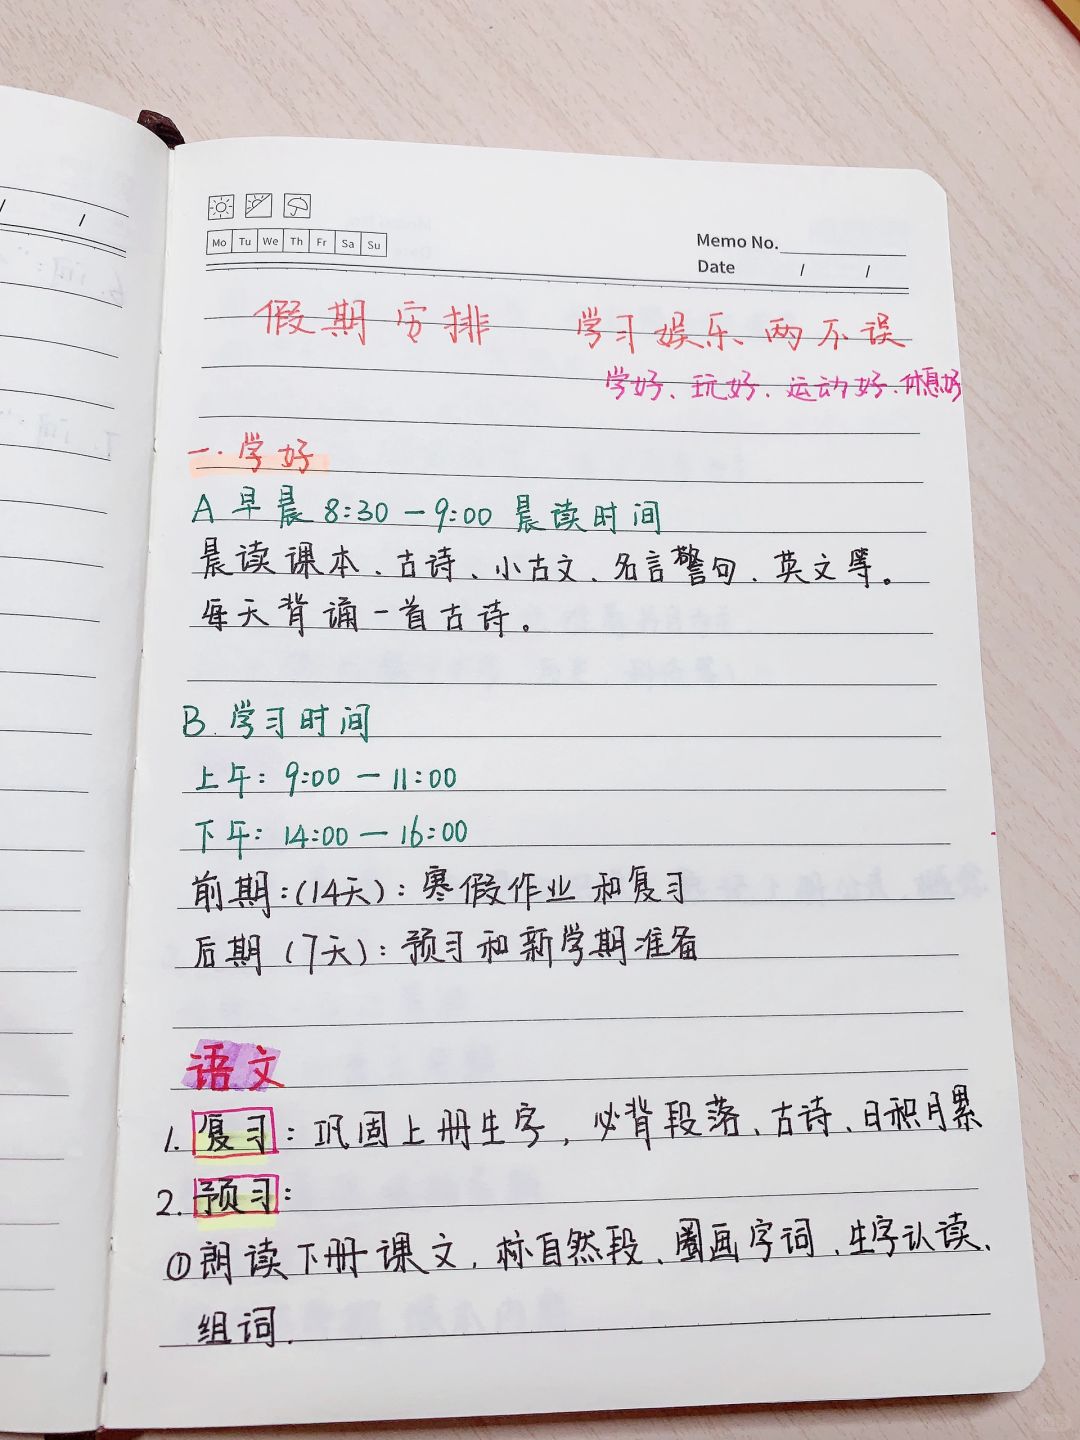 Mo Tu We Th Fr Sa Su
Memo No.
Date / /
假期安排 学习娱乐两不误
学好、玩好、运动好、休息好
一.学好
A 早晨 8:30 — 9:00 晨读时间
晨读课本、古诗、小古文、名言警句、英文等。
每天背诵一首古诗。
B.学习时间
上午: 9:00 — 11:00
下午: 14:00 — 16:00
前期:(14天): 寒假作业和复习
后期 (7天): 预习和新学期准备
语文
1. 复习: 巩固上册生字, 必背段落、古诗、日积月累
2. 预习:
①朗读下册课文, 标自然段、圈画字词、生字认读、
组词.